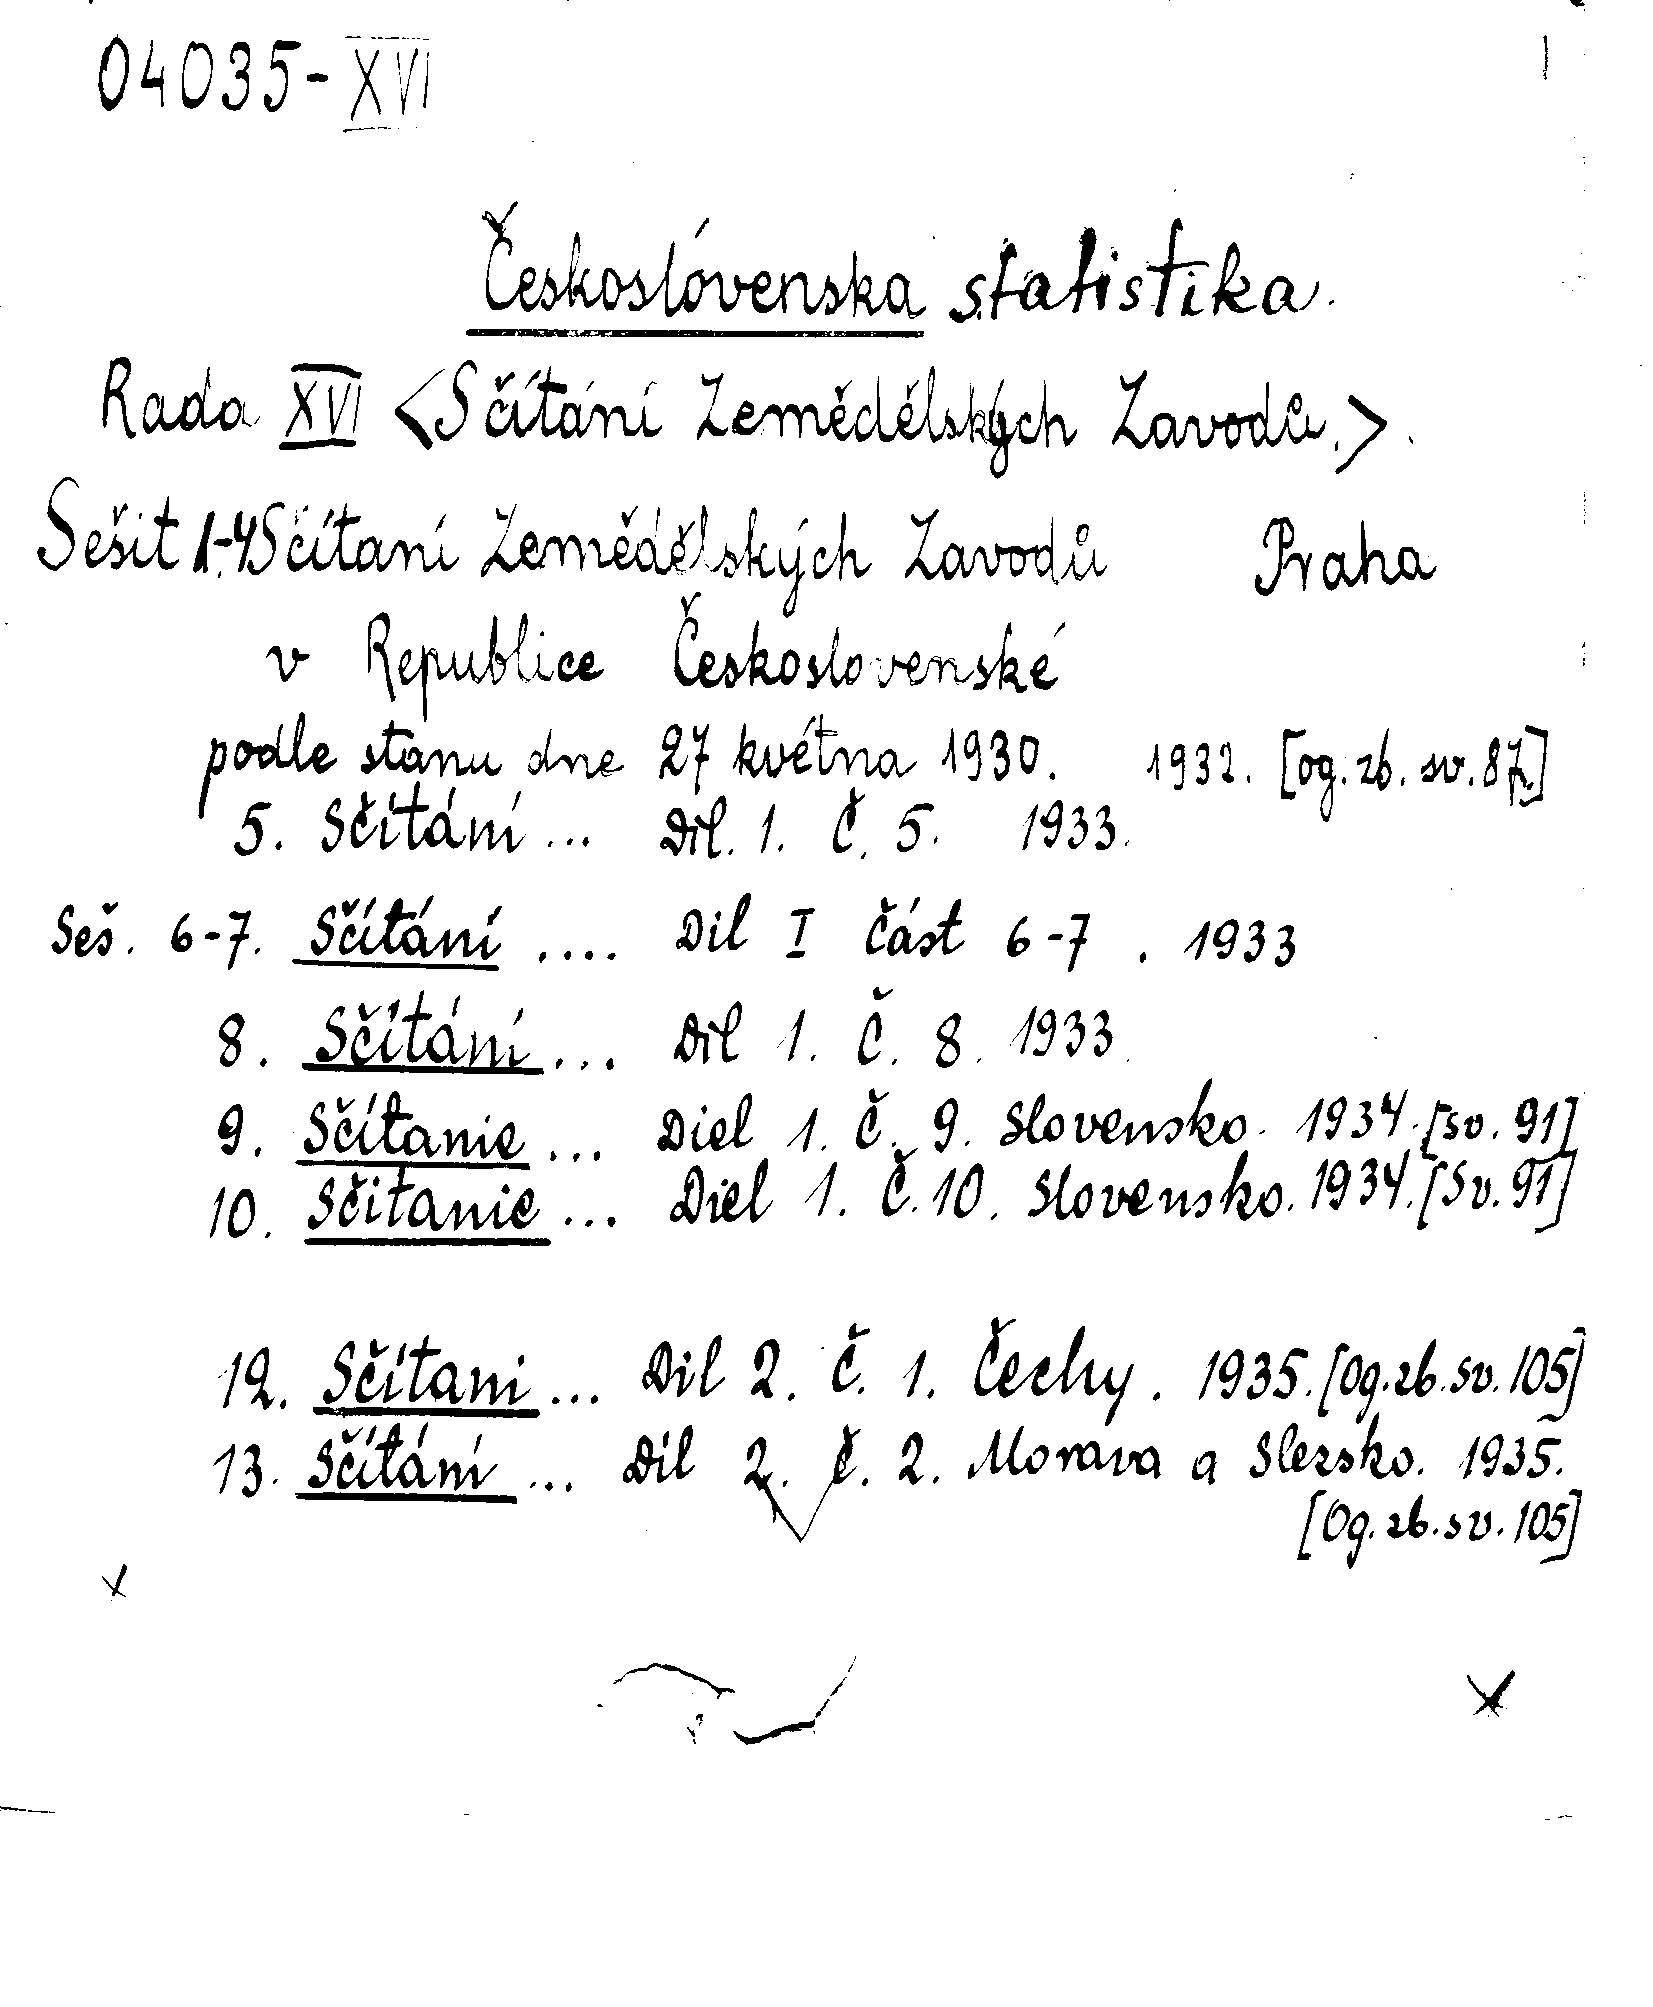 04035-XVI
Českoslóvenska statistika.
Rada XVI <Sčítání Zemědělských Zavodů.>.
Sešit 1-4 Sčítaní Zemědělských Zavodů Praha
v Republice Československé
podle stanu dne 27 května 1930. 1932. [og. zb. sv. 87]
5. Sčítání ... Díl. 1. Č. 5. 1933.
Seš. 6-7. Sčítání .... Díl I část 6-7 . 1933
8. Sčítání ... Díl 1. Č. 8. 1933.
9. Sčítanie ... Diel 1. Č. 9. Slovensko. 1934. [sv. 91]
10. Sčitanie ... Diel 1. Č. 10. Slovensko. 1934. [Sv. 91]
12. Sčítani ... Díl 2. Č. 1. Čechy. 1935. [Og. zb. sv. 105]
13. Sčítání ... Díl 2. Č. 2. Morava a Slezsko. 1935.
[Og. zb. sv. 105]